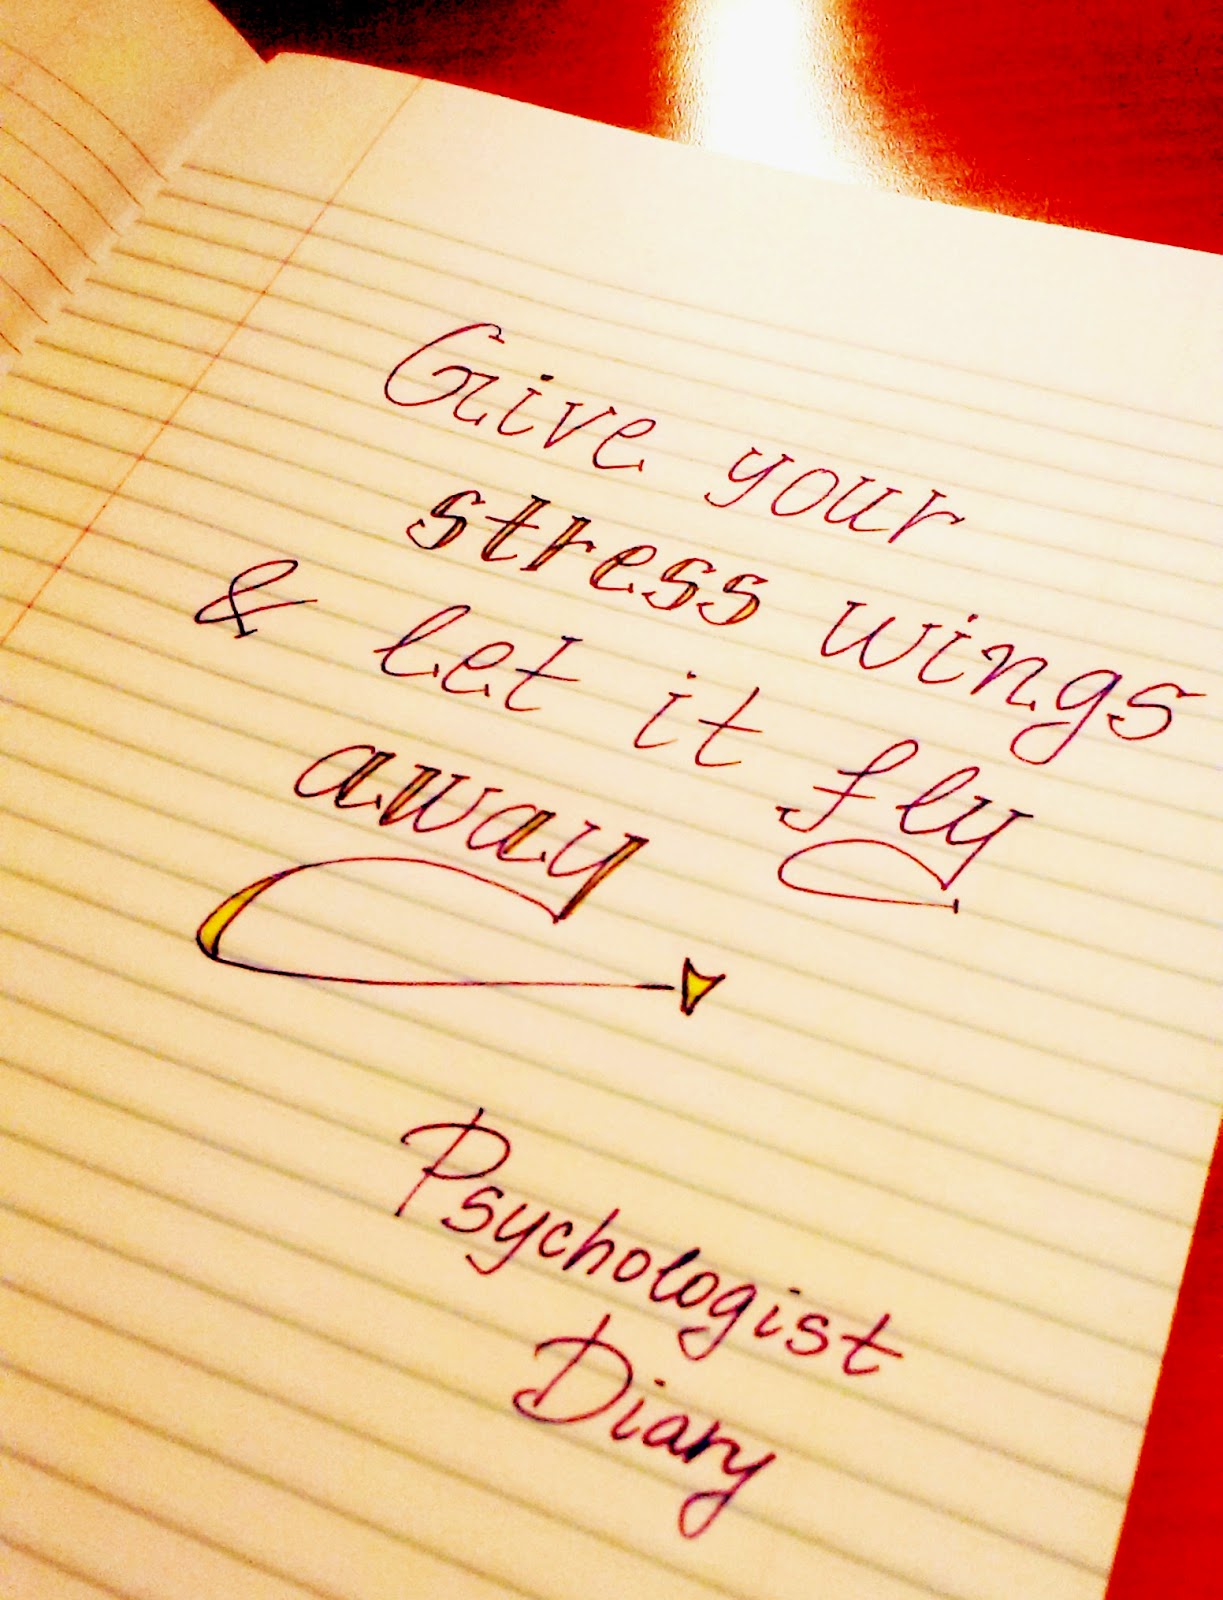 Give your
stress wings
& let it fly
away
Psychologist
Diary